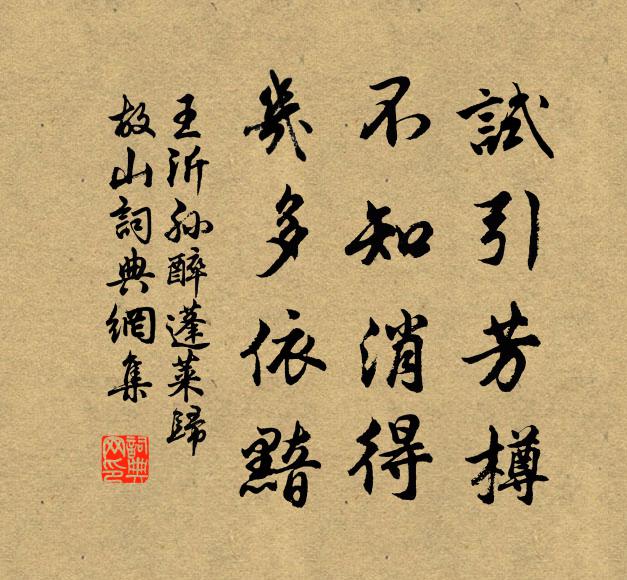 試引芳樽
不知消得
幾多依黯
王沂孫醉蓬萊歸
故山詞典網集
詞典网印